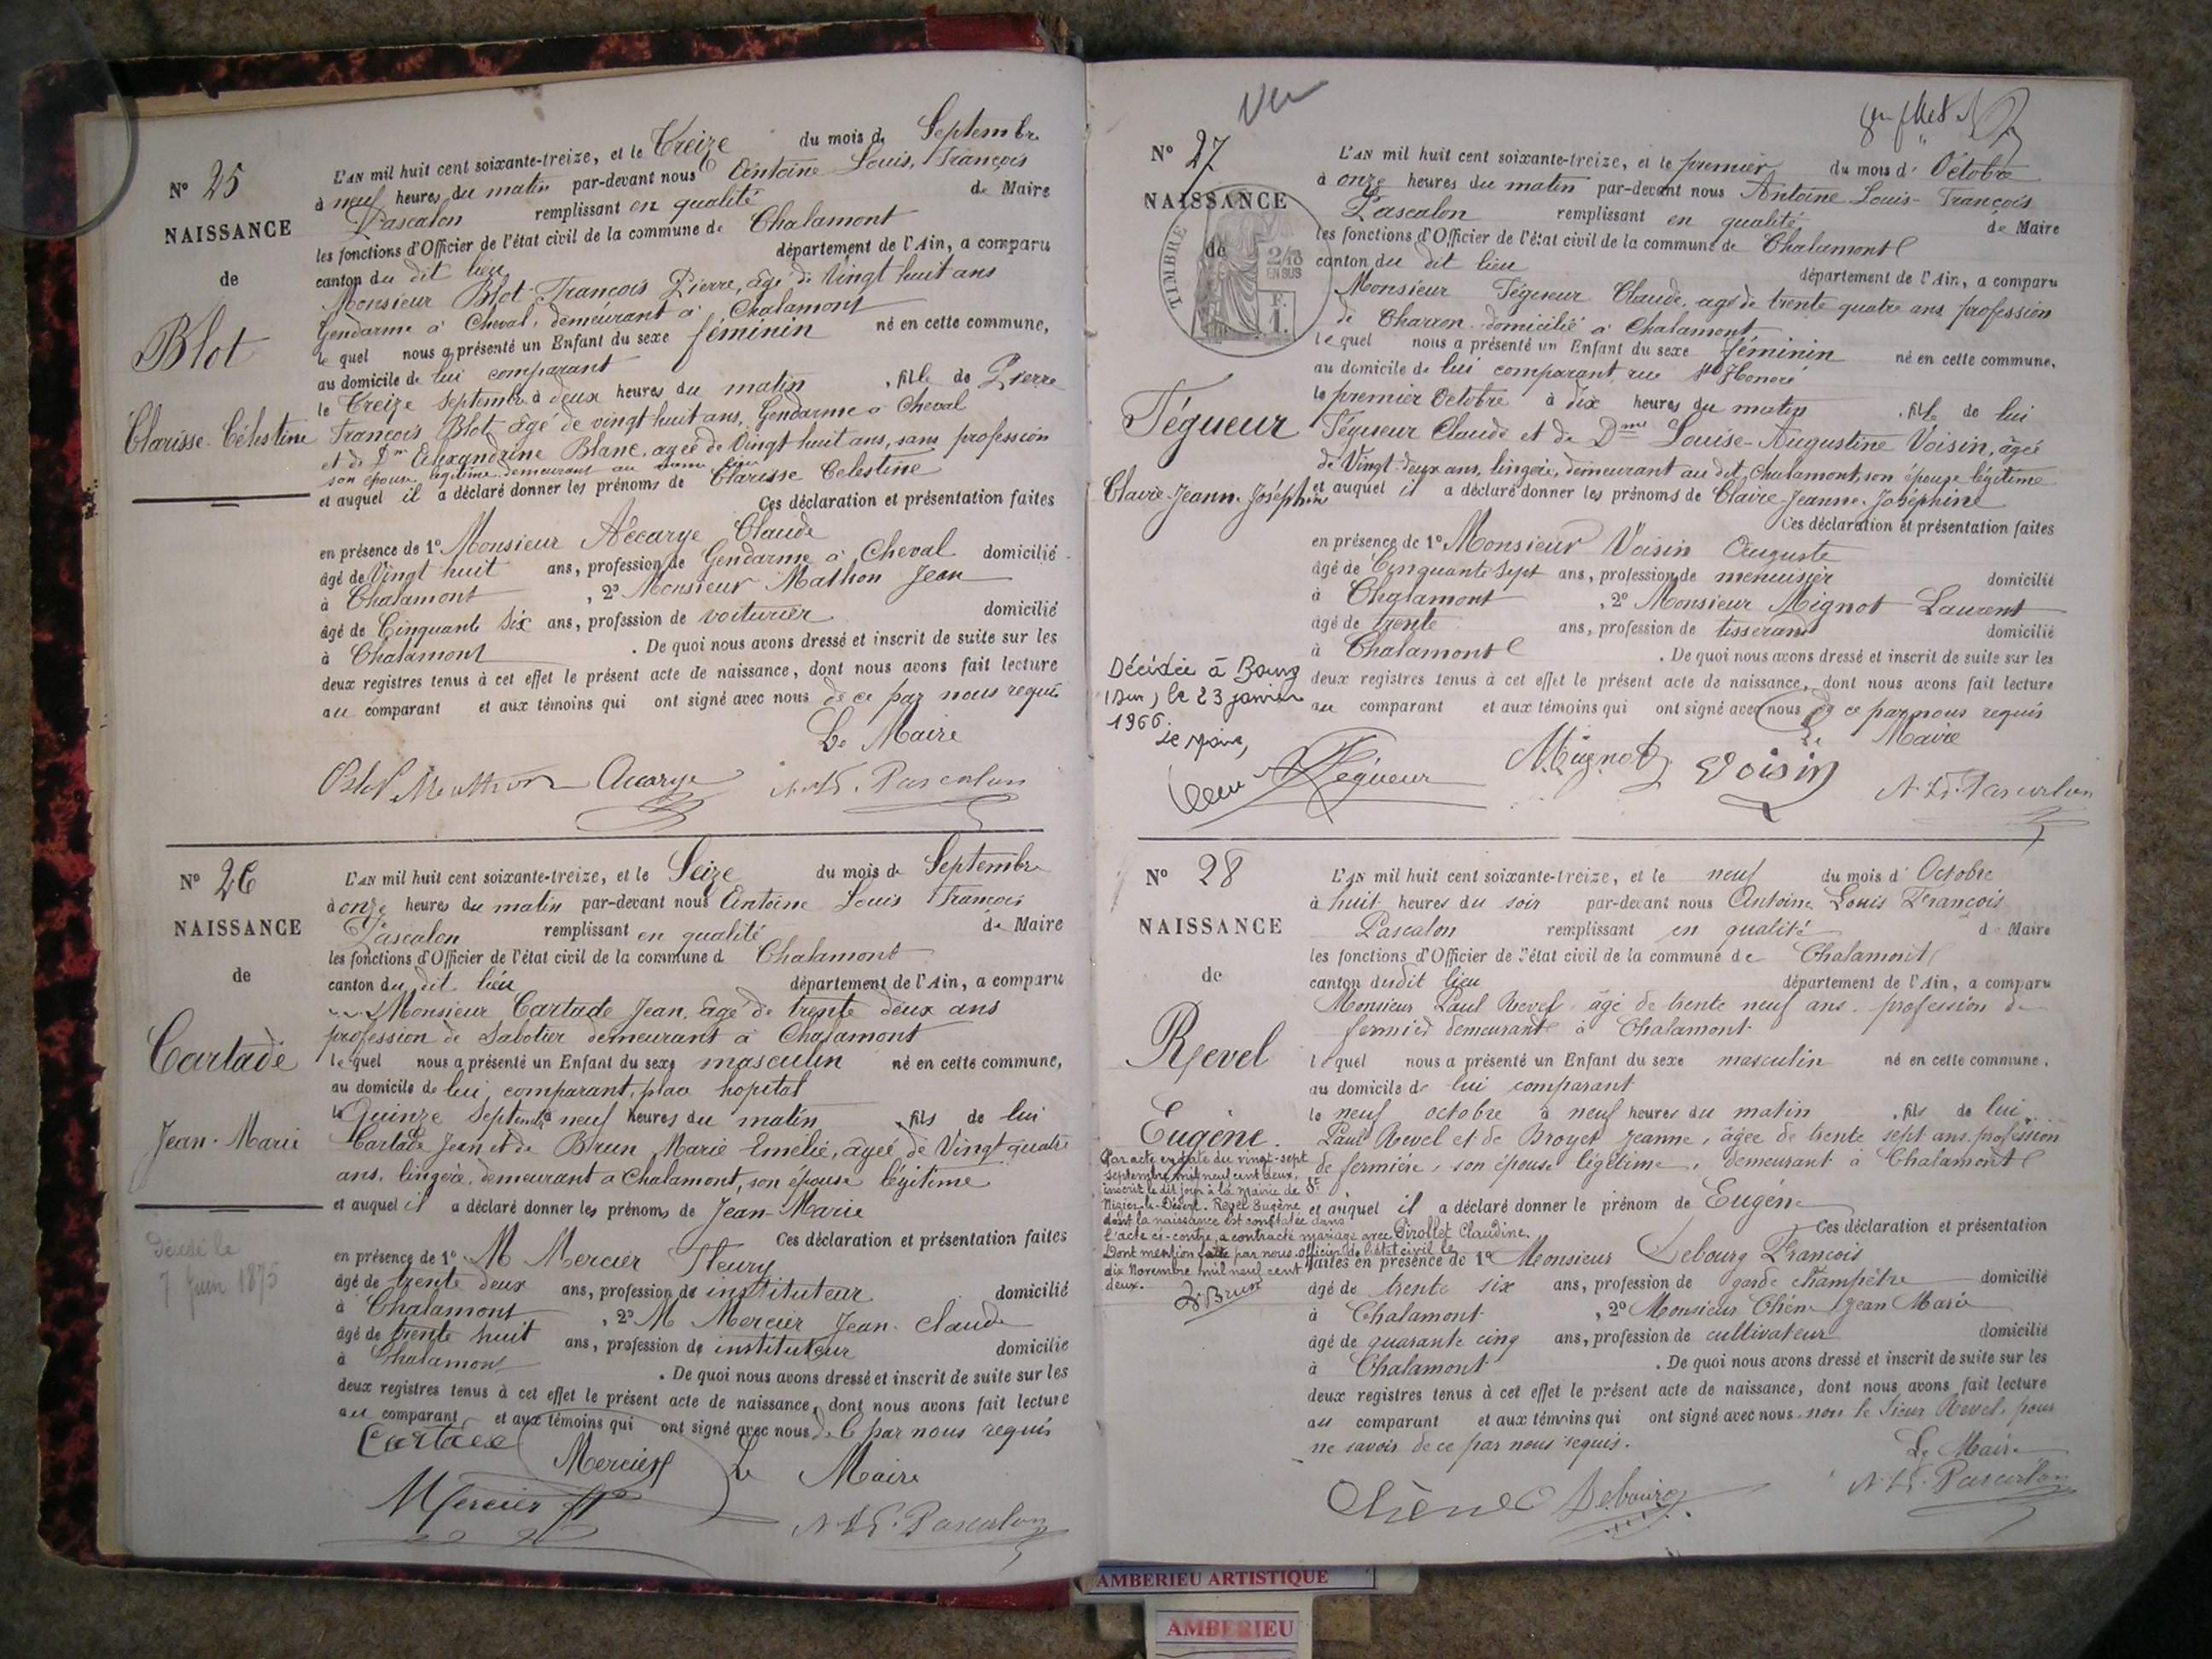 N° 25
NAISSANCE
de
Blot
Clarisse-Célestine
L'AN mil huit cent soixante-treize, et le Treize du mois de Septembre
à neuf heures du matin par-devant nous Antoine Louis, François
Pascalon remplissant en qualité de Maire
les fonctions d'Officier de l'état civil de la commune de Chalamont
canton du dit lieu département de l'Ain, a comparu
Monsieur Blot François Pierre, âgé de Vingt huit ans
Gendarme à Cheval, demeurant à Chalamont
le quel nous a présenté un Enfant du sexe féminin né en cette commune,
au domicile de lui comparant
le Treize Septembre à deux heures du matin, fille de Pierre
François Blot âgé de vingt huit ans, Gendarme à Cheval
et de Dme Alexandrine Blanc, agée de Vingt huit ans, sans profession
son épouse légitime demeurant au même lieu
et auquel il a déclaré donner les prénoms de Clarisse Celestine
Ces déclaration et présentation faites
en présence de 1° Monsieur Accarye Claude
âgé de Vingt huit ans, profession de Gendarme à Cheval domicilié
à Chalamont, 2° Monsieur Mathon Jean
âgé de Cinquante Six ans, profession de voiturier domicilié
à Chalamont. De quoi nous avons dressé et inscrit de suite sur les
deux registres tenus à cet effet le présent acte de naissance, dont nous avons fait lecture
au comparant et aux témoins qui ont signé avec nous de ce par nous requis
Le Maire
Blot Mathon Accarye A. L. F. Pascalon
N° 26
NAISSANCE
de
Cartade
Jean-Marie
Décédé le
7 Juin 1875
L'AN mil huit cent soixante-treize, et le Seize du mois de Septembre
à onze heures du matin par-devant nous Antoine Louis François
Pascalon remplissant en qualité de Maire
les fonctions d'Officier de l'état civil de la commune d Chalamont
canton du dit lieu département de l'Ain, a comparu
Monsieur Cartade Jean, âgé de trente deux ans
profession de Sabotier demeurant à Chalamont
le quel nous a présenté un Enfant du sexe masculin né en cette commune,
au domicile de lui comparant, place hopital
le Quinze Septembre à neuf heures du matin, fils de lui
Cartade Jean et de Brun Marie Emélie, âgée de Vingt quatre
ans, lingère, demeurant à Chalamont, son épouse légitime
et auquel il a déclaré donner les prénoms de Jean-Marie
Ces déclaration et présentation faites
en présence de 1° M Mercier Fleury
âgé de trente deux ans, profession de instituteur domicilié
à Chalamont, 2° M Mercier Jean-Claude
âgé de trente huit ans, profession de instituteur domicilié
à Chalamont. De quoi nous avons dressé et inscrit de suite sur les
deux registres tenus à cet effet le présent acte de naissance, dont nous avons fait lecture
au comparant et aux témoins qui ont signé avec nous de ce par nous requis
Cartade Mercier Le Maire
Mercier A. L. F. Pascalon
N° 27
NAISSANCE
de
TIMBRE
2/10
EN SUS
F.
1.
Tégueur
Claire-Jeanne-Joséphine
Décédée à Bourg
(Ain) le 23 janvier
1966.
Le Maire,
L'AN mil huit cent soixante-treize, et le premier du mois d' Octobre
à onze heures du matin par-devant nous Antoine Louis-François
Pascalon remplissant en qualité de Maire
les fonctions d'Officier de l'état civil de la commune de Chalamont
canton du dit lieu département de l'Ain, a comparu
Monsieur Tégueur Claude, agé de trente quatre ans profession
de Charron domicilié à Chalamont
le quel nous a présenté un Enfant du sexe féminin né en cette commune,
au domicile de lui comparant, rue St Honoré
le premier Octobre à dix heures du matin, fille de lui
Tégueur Claude et de Dme Louise-Augustine Voisin, âgée
de Vingt deux ans, lingère, demeurant au dit Chalamont, son épouse légitime
et auquel il a déclaré donner les prénoms de Claire-Jeanne-Joséphine
Ces déclaration et présentation faites
en présence de 1° Monsieur Voisin Auguste
âgé de Cinquante Sept ans, profession de menuisier domicilié
à Chalamont, 2° Monsieur Mignot Laurent
âgé de trente ans, profession de tisserand domicilié
à Chalamont. De quoi nous avons dressé et inscrit de suite sur les
deux registres tenus à cet effet le présent acte de naissance, dont nous avons fait lecture
au comparant et aux témoins qui ont signé avec nous de ce par nous requis
Le Maire
Tégueur Mignot Voisin A. L. F. Pascalon
N° 28
NAISSANCE
de
Revel
Eugène.
Par acte en date du vingt-sept
septembre mil neuf cent deux,
inscrit le dit jour à la mairie de St
Nizier-le-Désert, Revel Eugène
dont la naissance est constatée dans
l'acte ci-contre, a contracté mariage avec Pirollet Claudine.
Dont mention faite par nous officier de l'état civil le
dix Novembre mil neuf cent
deux.
L'AN mil huit cent soixante-treize, et le neuf du mois d' Octobre
à huit heures du soir par-devant nous Antoine Louis François
Pascalon remplissant en qualité d Maire
les fonctions d'Officier de l'état civil de la commune de Chalamont
canton dudit lieu département de l'Ain, a comparu
Monsieur Paul Revel âgé de trente neuf ans, profession de
fermier demeurant à Chalamont
lequel nous a présenté un Enfant du sexe masculin né en cette commune,
au domicile de lui comparant
le neuf octobre à neuf heures du matin, fils de lui
Paul Revel et de Broyet Jeanne, âgée de trente sept ans, profession
de fermière, son épouse légitime, demeurant à Chalamont
et auquel il a déclaré donner le prénom de Eugène
Ces déclaration et présentation
faites en présence de 1° Monsieur Debourg François
âgé de trente six ans, profession de garde champêtre domicilié
à Chalamont, 2° Monsieur Chêne Jean Marie
âgé de quarante cinq ans, profession de cultivateur domicilié
à Chalamont. De quoi nous avons dressé et inscrit de suite sur les
deux registres tenus à cet effet le présent acte de naissance, dont nous avons fait lecture
au comparant et aux témoins qui ont signé avec nous non le Sieur Revel, pour
ne savoir de ce par nous requis. Le Maire
Chêne Debourg A. L. F. Pascalon
AMBERIEU ARTISTIQUE
AMBERIEU